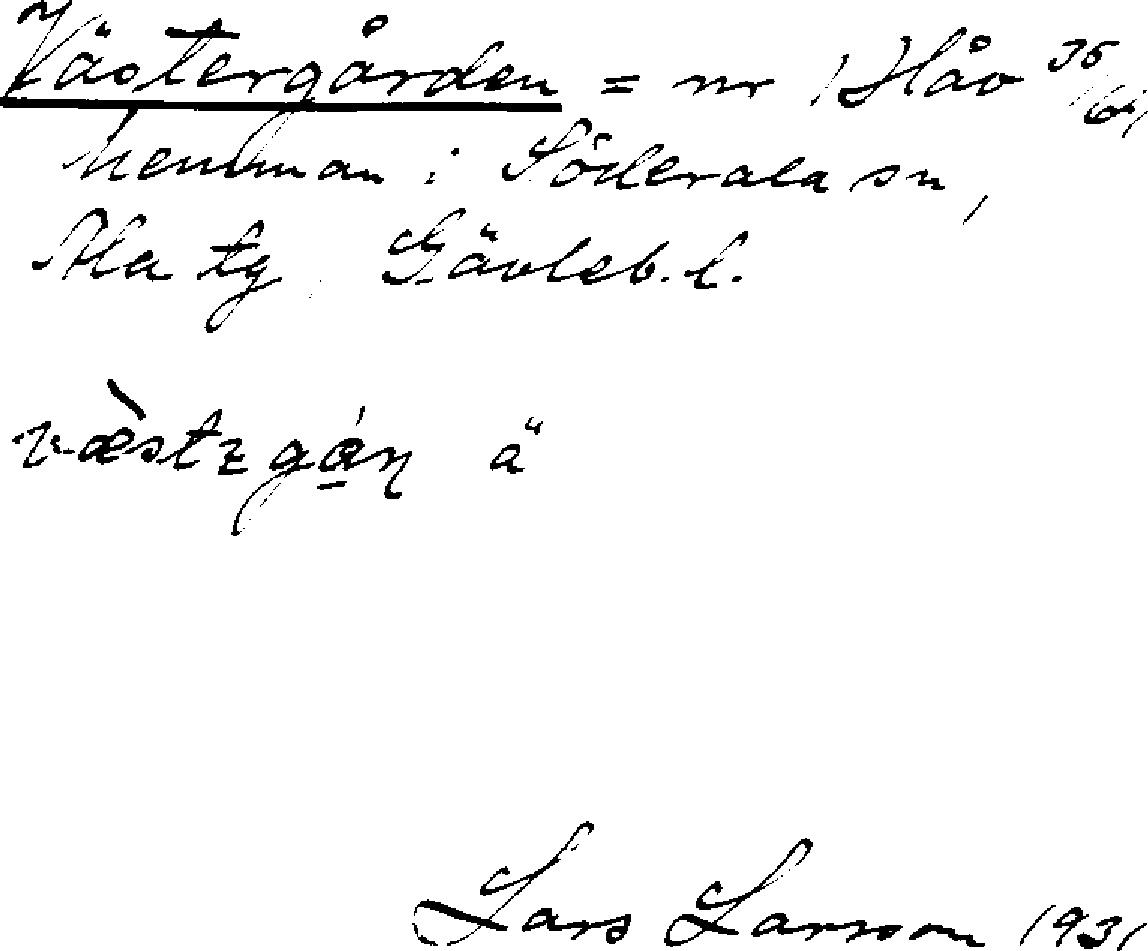 Västergården = nr 1 Håv 35/64
hemman i Söderala sn,
Ala tg Gävleb. l.
a"
Lars Larsson 1931